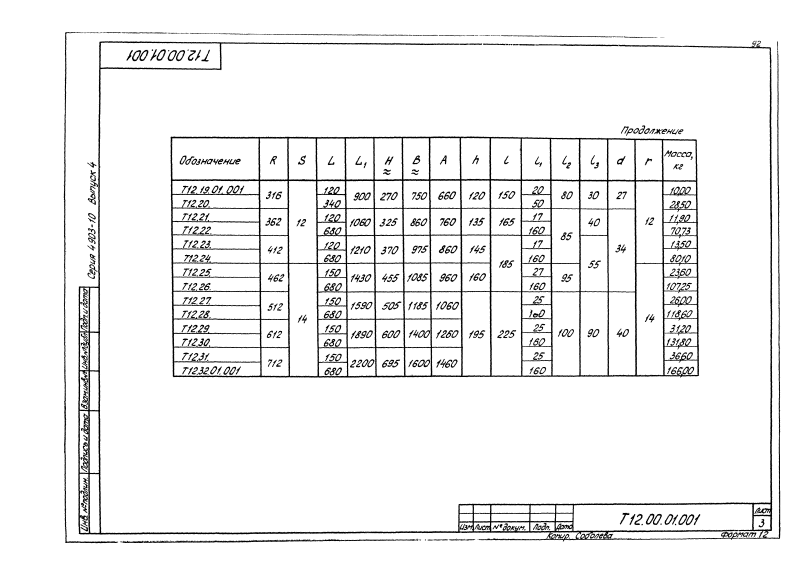 92
Т12.00.01.001
Продолжение
Обозначение R S L L₁ H ≈ B ≈ A h l l₁ l₂ l₃ d r Масса, кг
Т12.19.01.001 316 12 120 900 270 750 660 120 150 20 80 30 27 12 10,00
Т12.20. 340 50 28,50
Т12.21. 362 120 1060 325 860 760 135 165 17 85 40 34 11,90
Т12.22. 680 160 70,73
Т12.23. 412 120 1210 370 975 860 145 185 17 55 13,50
Т12.24. 680 160 80,10
Т12.25. 462 14 150 1430 455 1085 960 160 27 95 14 23,60
Т12.26. 680 160 107,25
Т12.27. 512 150 1590 505 1185 1060 195 225 25 100 90 40 26,00
Т12.28. 680 160 118,60
Т12.29. 612 150 1890 600 1400 1260 25 31,20
Т12.30. 680 160 131,80
Т12.31. 712 150 2200 695 1600 1460 25 36,60
Т12.32.01.001 680 160 166,00
Серия 4.903-10 Выпуск 4
Инв. № подлин. Подпись и дата Взам. инв. № Инв. № дубл. Подп. и дата
Изм. Лист № докум. Подп. Дата
Т12.00.01.001
Лист
3
Копир. Соболева
Формат 12